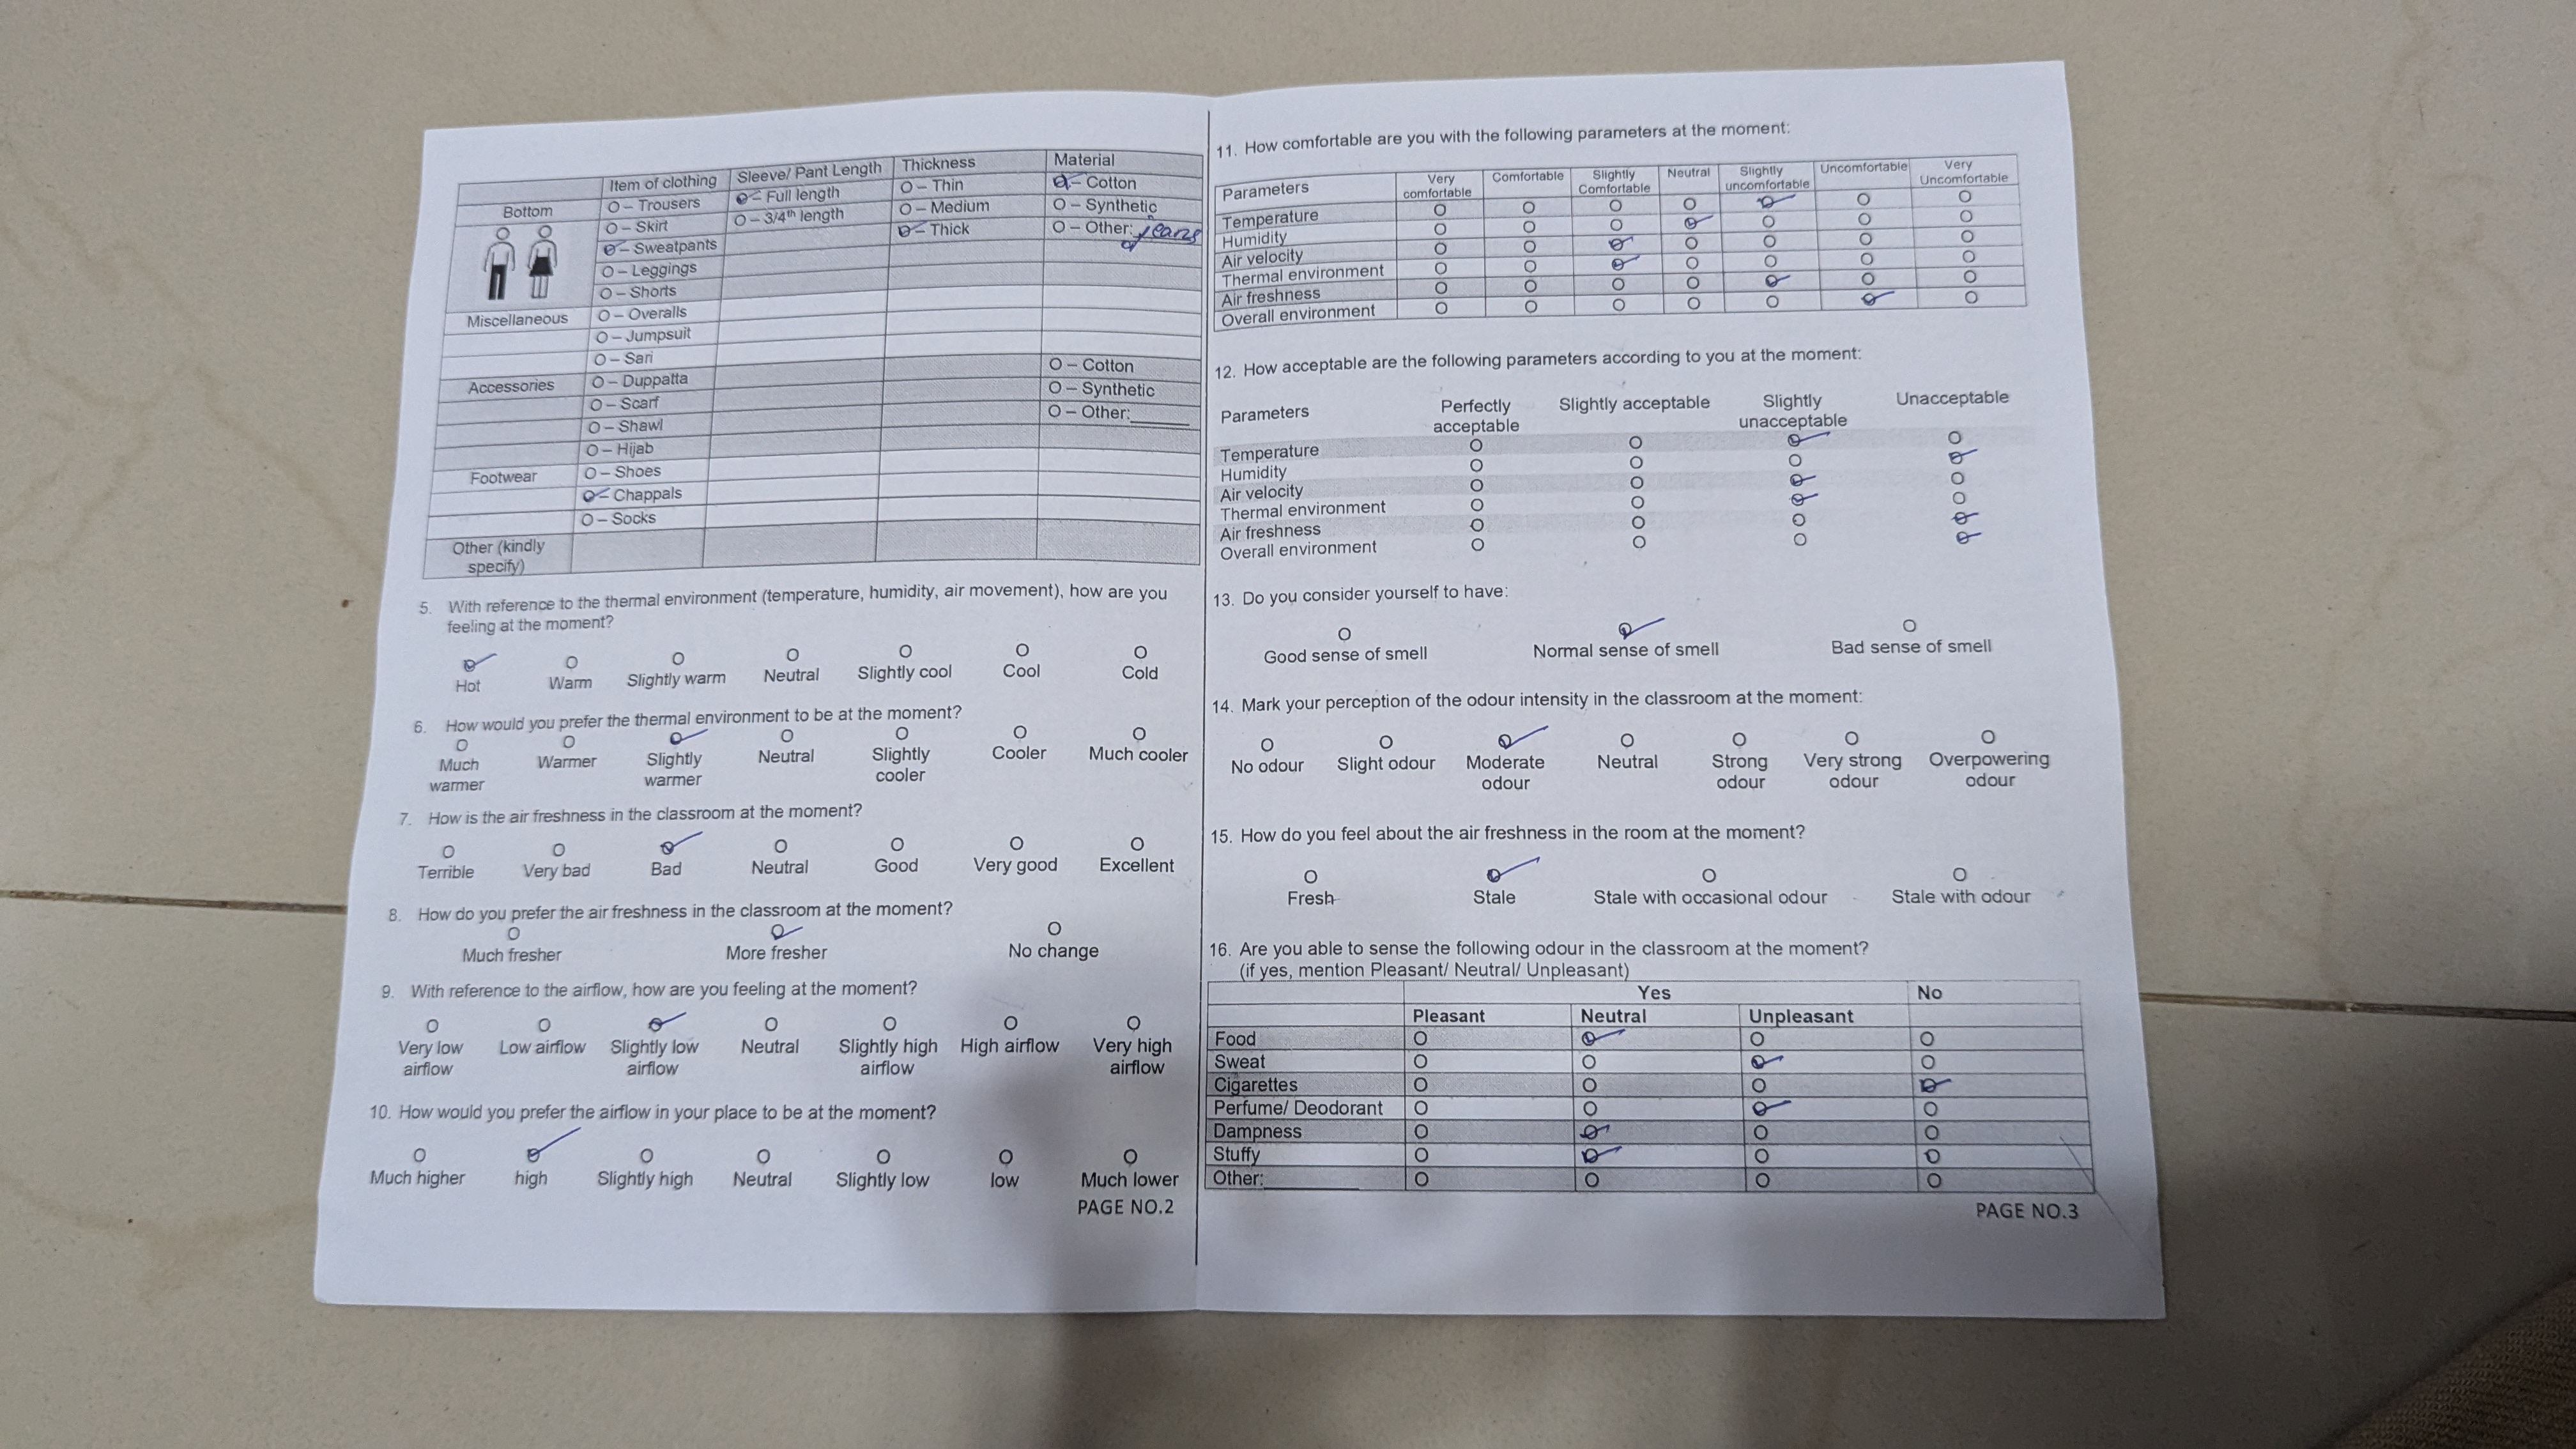 Item of clothing Sleeve/ Pant Length Thickness Material
Bottom O – Trousers O – Full length O – Thin O – Cotton
O – Skirt O – 3/4th length O – Medium O – Synthetic
O – Sweatpants O – Thick O – Other: Jeans
O – Leggings
O – Shorts
Miscellaneous O – Overalls
O – Jumpsuit
O – Sari
Accessories O – Duppatta O – Cotton
O – Scarf O – Synthetic
O – Shawl O – Other:______
O – Hijab
Footwear O – Shoes
O – Chappals
O – Socks
Other (kindly
specify)
5. With reference to the thermal environment (temperature, humidity, air movement), how are you
feeling at the moment?
Hot Warm Slightly warm Neutral Slightly cool Cool Cold
6. How would you prefer the thermal environment to be at the moment?
Much Warmer Slightly Neutral Slightly Cooler Much cooler
warmer warmer cooler
7. How is the air freshness in the classroom at the moment?
Terrible Very bad Bad Neutral Good Very good Excellent
8. How do you prefer the air freshness in the classroom at the moment?
Much fresher More fresher No change
9. With reference to the airflow, how are you feeling at the moment?
Very low Low airflow Slightly low Neutral Slightly high High airflow Very high
airflow airflow airflow airflow
10. How would you prefer the airflow in your place to be at the moment?
Much higher high Slightly high Neutral Slightly low low Much lower
PAGE NO.2
11. How comfortable are you with the following parameters at the moment:
Parameters Very Comfortable Slightly Neutral Slightly Uncomfortable Very
comfortable Comfortable uncomfortable Uncomfortable
Temperature
Humidity
Air velocity
Thermal environment
Air freshness
Overall environment
12. How acceptable are the following parameters according to you at the moment:
Parameters Perfectly Slightly acceptable Slightly Unacceptable
acceptable unacceptable
Temperature
Humidity
Air velocity
Thermal environment
Air freshness
Overall environment
13. Do you consider yourself to have:
Good sense of smell Normal sense of smell Bad sense of smell
14. Mark your perception of the odour intensity in the classroom at the moment:
No odour Slight odour Moderate Neutral Strong Very strong Overpowering
odour odour odour odour
15. How do you feel about the air freshness in the room at the moment?
Fresh Stale Stale with occasional odour Stale with odour
16. Are you able to sense the following odour in the classroom at the moment?
(if yes, mention Pleasant/ Neutral/ Unpleasant)
Yes No
Pleasant Neutral Unpleasant
Food
Sweat
Cigarettes
Perfume/ Deodorant
Dampness
Stuffy
Other:__________
PAGE NO.3